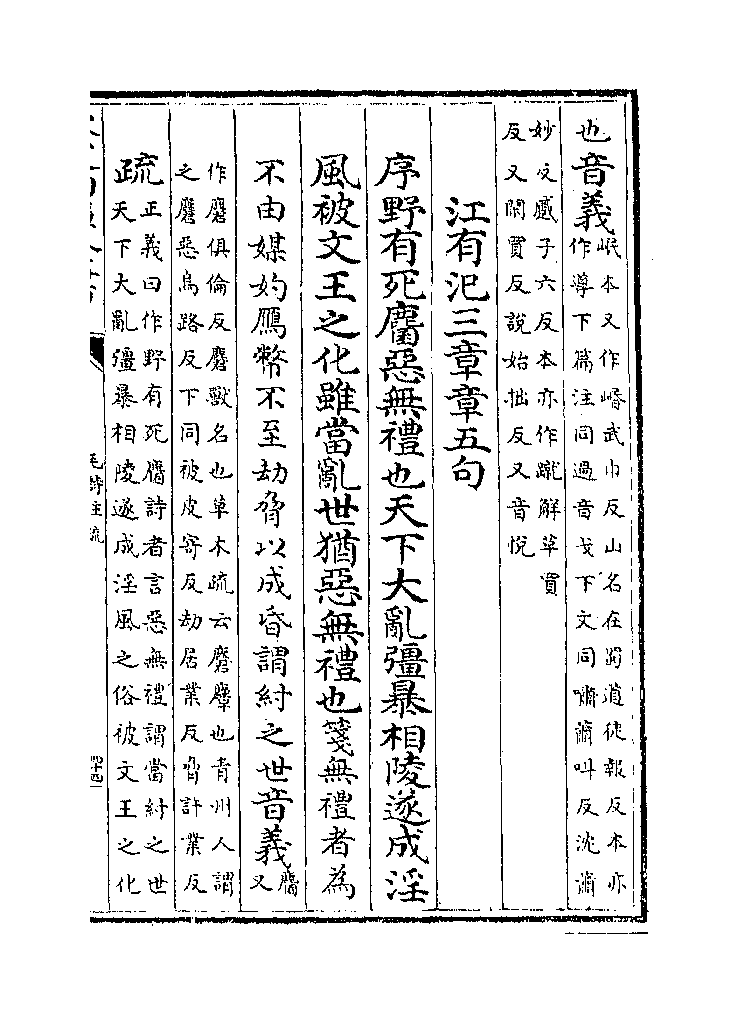 也音義岷本又作㟭武巾反山名在蜀道徒報反本亦
作導下篇注同過音戈下文同嘯蕭叫反沈蕭
妙反蹙子六反本亦作蹴解革買
反又閑買反說始拙反又音悅
江有汜三章章五句
序野有死麕惡無禮也天下大亂彊暴相陵遂成淫
風被文王之化雖當亂世猶惡無禮也箋無禮者為
不由媒妁鴈幣不至劫脅以成昏謂紂之世音義麕
又
作麏俱倫反麕獸名也草木疏云麕麞也青州人謂
之麏惡烏路反下同被皮寄反劫居業反脅許業反
疏正義曰作野有死麕詩者言惡無禮謂當紂之世
天下大亂彊暴相陵遂成淫風之俗被文王之化
毛詩注疏
四十四